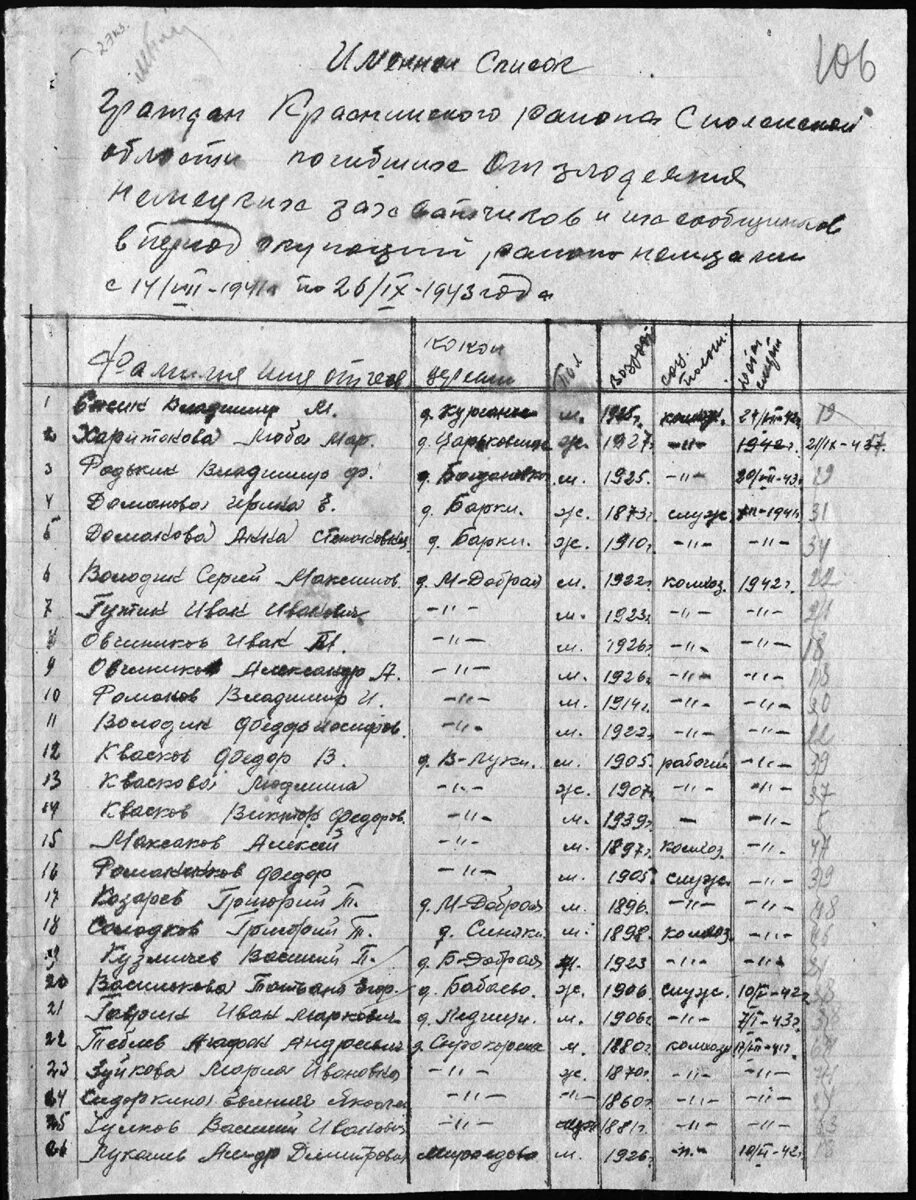 2 экз.
106
Именной Список
Граждан Краснинского района Смоленской
области погибших от злодеяния
немецких захватчиков и их сообщников
в период окупоций района немцами
с 14/VII-1941 по 26/IX-1943 года
Фамилия имя отчес какой деревни Пол возраст соц. полож.
1 Владимир М. д. м. 1925г. колхоз. 19
2 Харитонова Люба Мар. ж. 1927г. -"- 1942г. 21/IX-43г.
3 Родькин Владимир Ф. д. м. 1925г. -"- 20/VII-43г. 19
4 Доманова Ирина Е. д. Барки. ж. 1873г. служ. VII-1941г. 31
5 Доманова Анна д. Барки. ж. 1910г. -"- -"- 34
6 Володин Сергей Максимов. д. М-Добрая м. 1922г. колхоз. 1942г. 22
7 Гутик Иван Иванович -"- м. 1923г. -"- -"- 21
8 Овчиников Иван М. -"- м. 1926г. -"- -"- 18
9 Овчиников Александр А. -"- м. 1926г. -"- -"- 18
10 Романов Владимир И. -"- м. 1914г. -"- -"- 30
11 Володин Федор Иосифов. -"- м. 1922г. -"- -"- 22
12 Квасков Федор В. д. В-Луки. м. 1905г. рабочий -"- 39
13 Кваскова Людмила -"- ж. 1907г. -"- -"- 37
14 Квасков Виктор Федоров. -"- м. 1939г. - -"- 5
15 Максаков Алексей -"- м. 1897г. колхоз. -"- 47
16 Федор -"- м. 1905г. служ. -"- 39
17 Козарев Григорий П. д. М-Добрая м. 1896г. -"- -"- 48
18 Солодков Григорий Т. д. Синяки м. 1898г. колхоз. -"- 46
19 Кузмичев Василий П. д. Б-Добрая м. 1923 -"- -"- 21
20 Василькова Татьяна Егор. д. Бабаево. ж. 1906г. служ. 10/V-42г. 38
21 Гаврик Иван Маркович д. м. 1906г. -"- 7/I-43г. 38
22 Теблев Агафон Андреевич д. Сырокоренье м. 1880г. колхоз 64
23 Зуйкова Мария Ивановна -"- ж. 1870г. -"- -"- 74
24 Сидоркина Евгения -"- -"- 1860г. -"- -"-
25 Гулков Василий Иванович -"- 1881г. -"- -"- 63
26 Лукашев Дмитрович м. 1926г. -"- 10/V-42г. 18